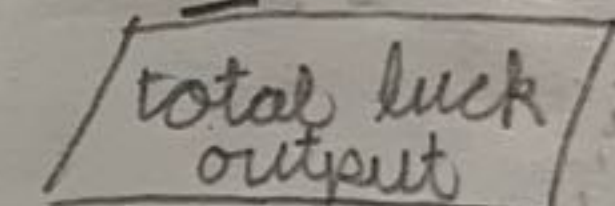 total luck
output